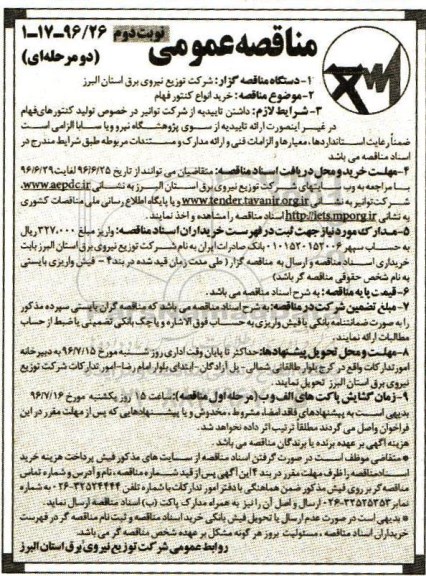 مناقصه عمومی نوبت دوم ۹۶/۲۶-۱۷-۱
(دو مرحله‌ای)
۱-دستگاه مناقصه گزار: شرکت توزیع نیروی برق استان البرز
۲-موضوع مناقصه: خرید انواع کنتور فهام
۳- شرایط لازم: داشتن تاییدیه از شرکت توانیر در خصوص تولید کنتورهای فهام
در غیر اینصورت ارائه تاییدیه از سوی پژوهشگاه نیرو و یا سابا الزامی است
ضمناً رعایت استانداردها، معیارها و الزامات فنی و ارائه مدارک و مستندات مربوطه طبق شرایط مندرج در
اسناد مناقصه می باشد
۴-مهلت خرید و محل دریافت اسناد مناقصه: متقاضیان می توانند از تاریخ ۹۶/۶/۲۵ لغایت ۹۶/۶/۲۹
با مراجعه به وب سایتهای شرکت توزیع نیروی برق استان البرز به نشانی www.aepdc.ir،
شرکت توانیر به نشانی www.tender.tavanir.org.ir و یا پایگاه اطلاع رسانی ملی مناقصات کشوری
به نشانی http://iets.mporg.ir اسناد مناقصه را مشاهده و اخذ نمایند.
۵-مدارک مورد نیاز جهت ثبت در فهرست خریداران اسناد مناقصه: واریز مبلغ ۳۲۷،۰۰۰ ریال
به حساب سپهر ۰۱۰۱۵۲۰۱۵۲۰۰۶ بانک صادرات ایران به نام شرکت توزیع نیروی برق استان البرز بابت
خریداری اسناد مناقصه و ارسال به مناقصه گزار ( طی مدت زمان قید شده در بند ۴ - فیش واریزی بایستی
به نام شخص حقوقی مناقصه گر باشد)
۶-قیمت پایه مناقصه: به شرح اسناد مناقصه می باشد.
۷-مبلغ تضمین شرکت در مناقصه: به شرح اسناد مناقصه می باشد که مناقصه گران بایستی سپرده مذکور
را به صورت ضمانتنامه بانکی یا فیش واریزی به حساب فوق الاشاره و یا چک بانکی تضمینی یا ضبط از حساب
مطالبات ارائه نمایند.
۸-مهلت و محل تحویل پیشنهادها: حداکثر تا پایان وقت اداری روز شنبه مورخ ۹۶/۷/۱۵ به دبیرخانه
امور تدارکات واقع در کرج بلوار طالقانی شمالی- پل آزادگان - ابتدای بلوار امام رضا- امور تدارکات شرکت توزیع
نیروی برق استان البرز تحویل نمایند.
۹-زمان گشایش پاکت های الف و ب (مرحله اول مناقصه): ساعت ۱۵ روز یکشنبه مورخ ۹۶/۷/۱۶
بدیهی است به پیشنهادهای فاقد امضاء مشروط، مخدوش و یا پیشنهادهایی که پس از مهلت مقرر در این
فراخوان واصل می گردند مطلقاً ترتیب اثر داده نخواهد شد.
هزینه آگهی بر عهده برنده یا برندگان مناقصه می باشد.
* متقاضی موظف است در صورت گرفتن اسناد مناقصه از سایت های مذکور فیش پرداخت هزینه خرید
اسناد مناقصه را ظرف مهلت مقرر در بند ۴ این آگهی پس از قید شماره مناقصه، نام و آدرس و شماره تماس
مناقصه گر بر روی فیش مذکور ضمن هماهنگی با دفتر امور تدارکات با شماره تلفن ۳۲۵۲۴۴۴۴-۰۲۶ به شماره
نمابر ۳۲۵۲۵۲۵۳-۰۲۶ ارسال و اصل آن را نیز به همراه مدارک پاکت (ب) اسناد مناقصه ارسال نماید.
* بدیهی است در صورت عدم ارسال یا تحویل فیش بانکی خرید اسناد مناقصه و ثبت نام مناقصه گر در فهرست
خریداران اسناد مناقصه ، مسئولیت بروز هر گونه مشکل بر عهده شخص مناقصه گر می باشد.
روابط عمومی شرکت توزیع نیروی برق استان البرز